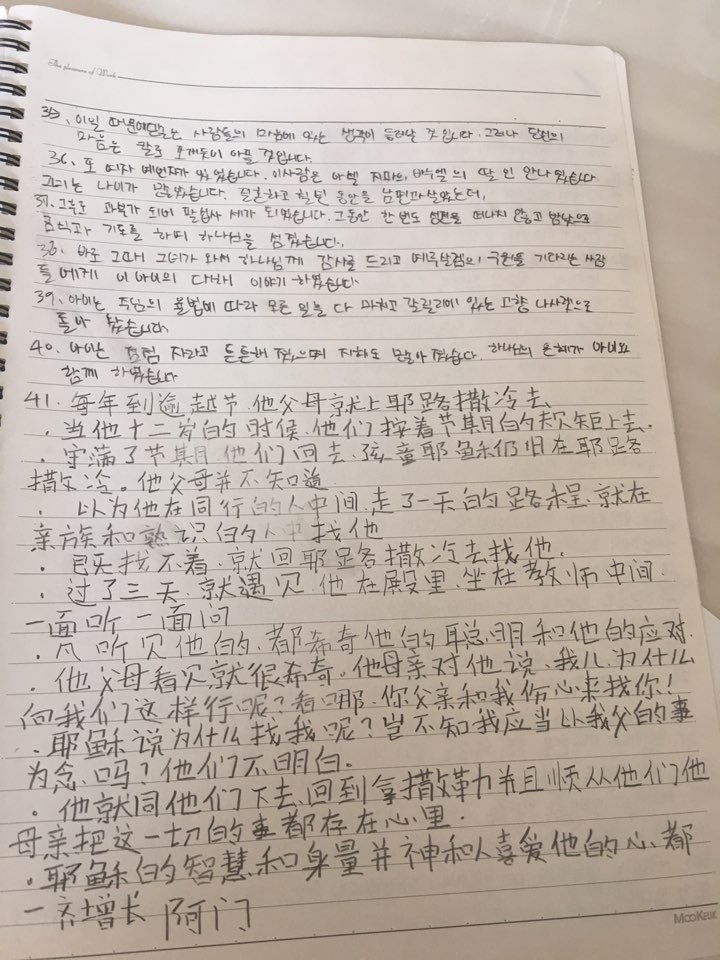 The pleasure of Work
35. 이일 때문에 사람들의 마음에 있는 생각이 드러날 것입니다. 그러나 당신의
마음은 칼로 쪼개듯이 아플 것입니다.
36. 또 여자 예언자가 있었습니다. 이사람은 아셀 지파의 바누엘의 딸인 안나였습니다.
그녀는 나이가 많았습니다. 결혼하고 칠년 동안을 남편과 살았는데,
37. 그후로 과부가 되어 팔십사 세가 되었습니다. 그동안 한 번도 성전을 떠나지 않고 밤낮으로
금식과 기도를 하며 하나님을 섬겼습니다.
38. 바로 그때 그녀가 와서 하나님께 감사를 드리고 예루살렘의 구원을 기다리는 사람
들에게 이 아이에 대해 이야기 하였습니다.
39. 아이는 주님의 율법에 따라 모든 일을 다 마치고 갈릴리에 있는 고향 나사렛으로
돌아 왔습니다
40. 아이는 점점 자라고 튼튼해 졌으며 지혜도 많아 졌습니다. 하나님의 은혜가 아이와
함께 하였습니다
41. 每年到逾越节.他父母就上耶路撒冷去.
. 当他十二岁的时候.他们按着节期的规矩上去.
. 守满了节期他们回去.孩童耶稣仍旧在耶路
撒冷。他父母并不知道
. 以为他在同行的人中间.走了一天的路程.就在
亲族和熟识的人中找他
. 既找不着.就回耶路撒冷去找他.
. 过了三天.就遇见他在殿里.坐在教师中间.
一面听一面问
. 凡听见他的.都希奇他的聪明和他的应对.
. 他父母看见就很希奇。他母亲对他说.我儿.为什么
向我们这样行呢?看哪.你父亲和我伤心来找你!
. 耶稣说为什么找我呢?岂不知我应当以我父的事
为念.吗?他们不明白.
. 他就同他们下去.回到拿撒勒并且顺从他们他
母亲把这一切的事都存在心里.
. 耶稣的智慧和身量并神和人喜爱他的心.都
一齐增长 阿门
MOOKEUK